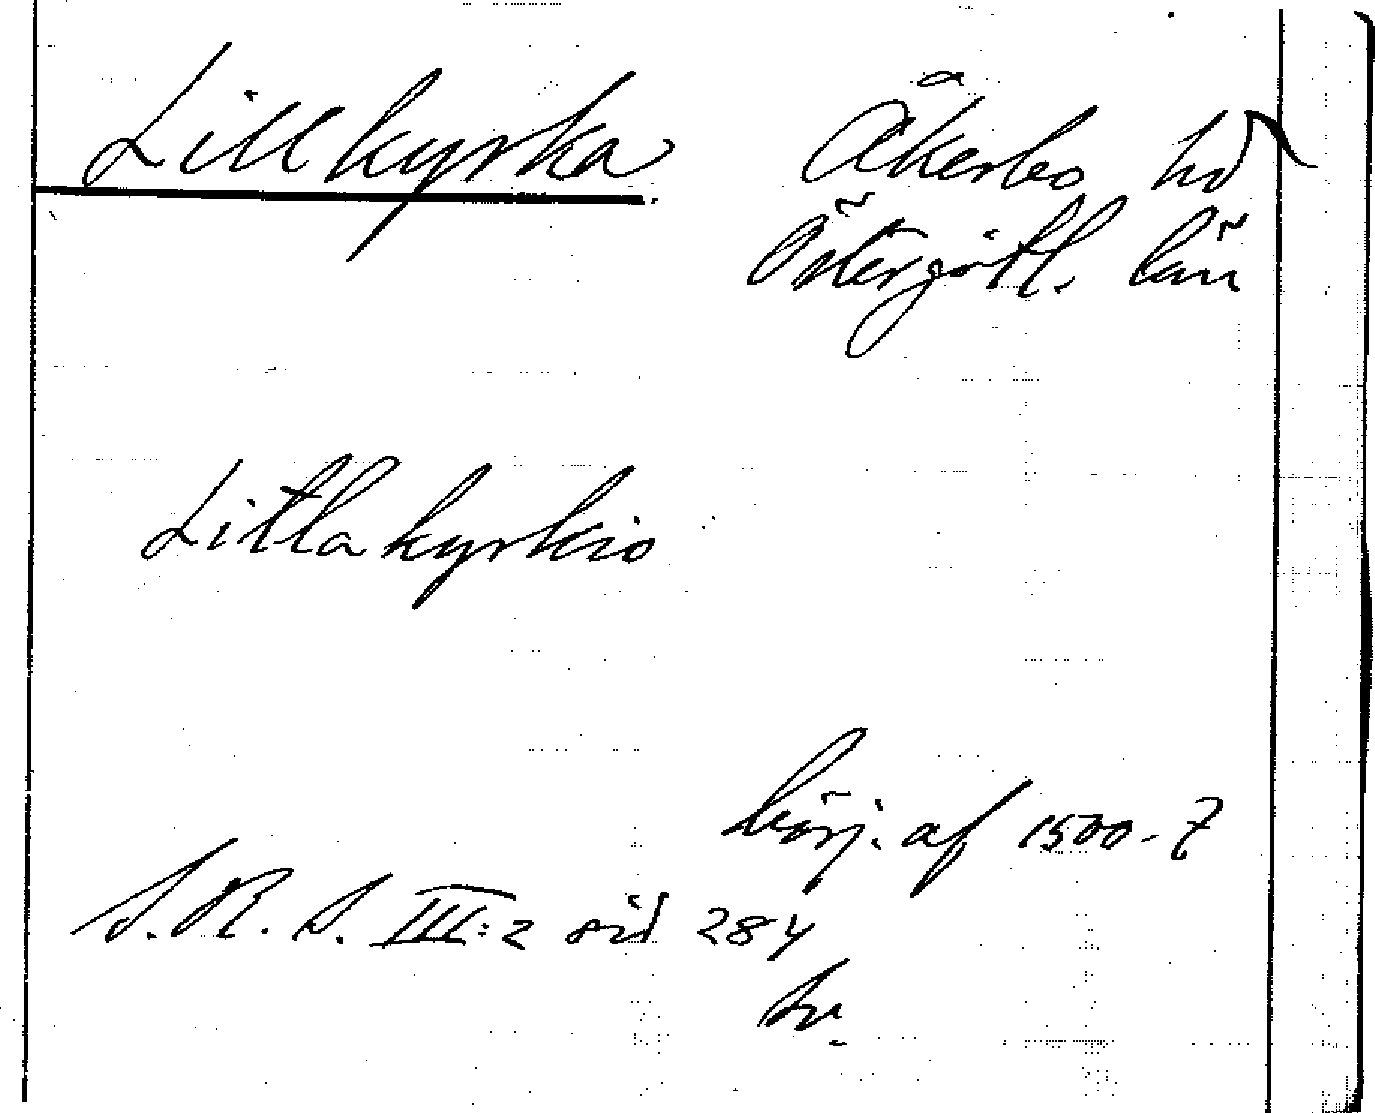 Lillkyrka Åkerbo hd
Östergötl. län
Litlakyrkio
börj. af 1500-t
S. R. S. III:2 sid 284
tr.